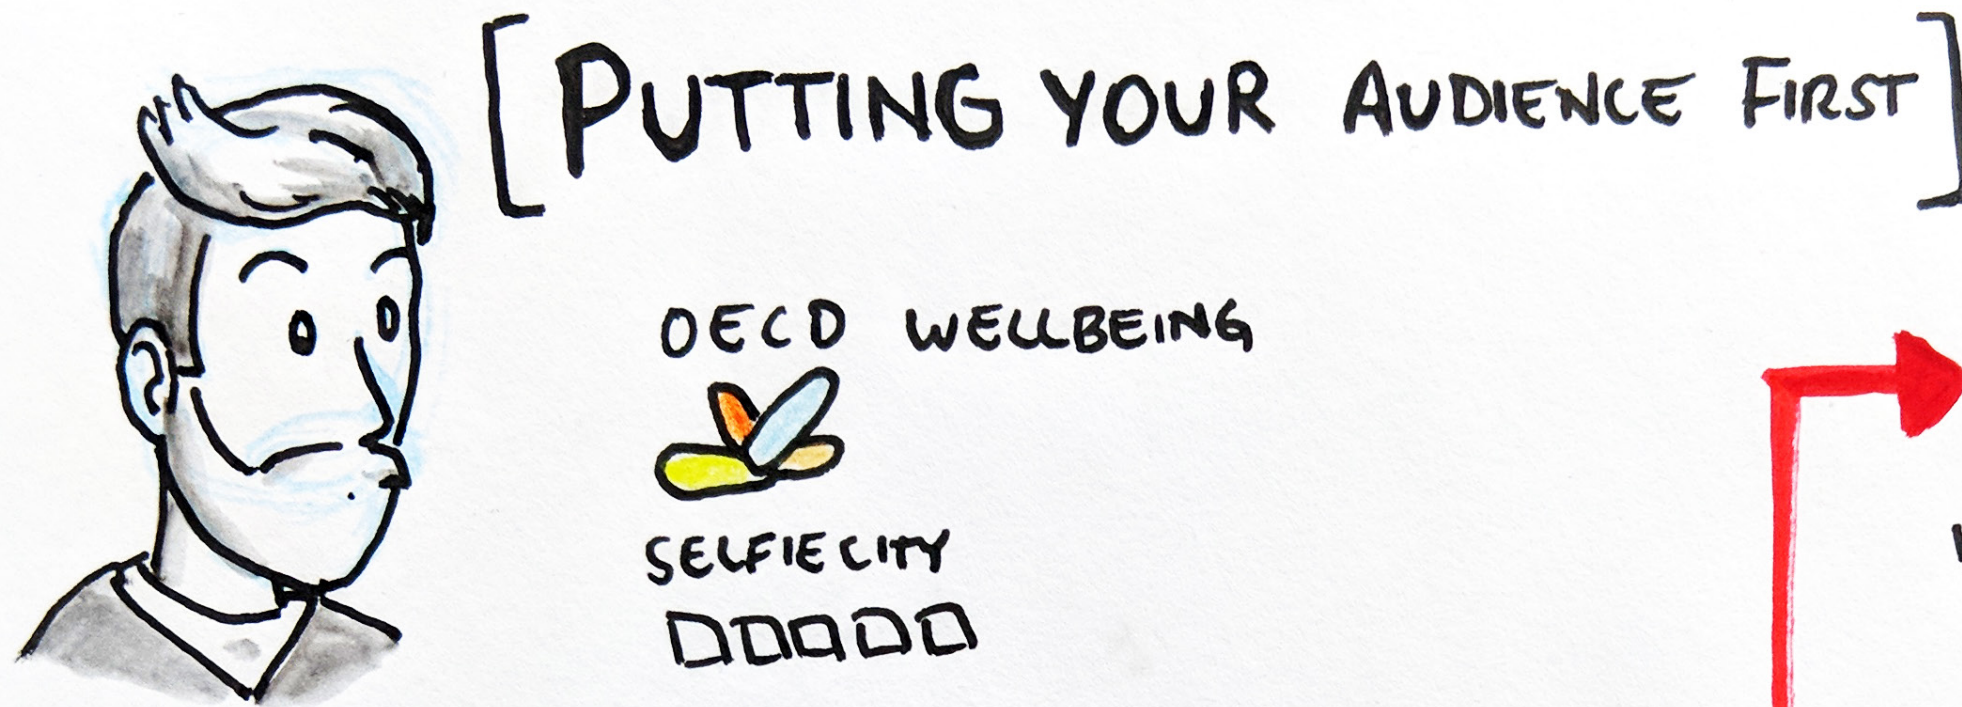 [PUTTING YOUR AUDIENCE FIRST]
OECD WELLBEING
SELFIECITY